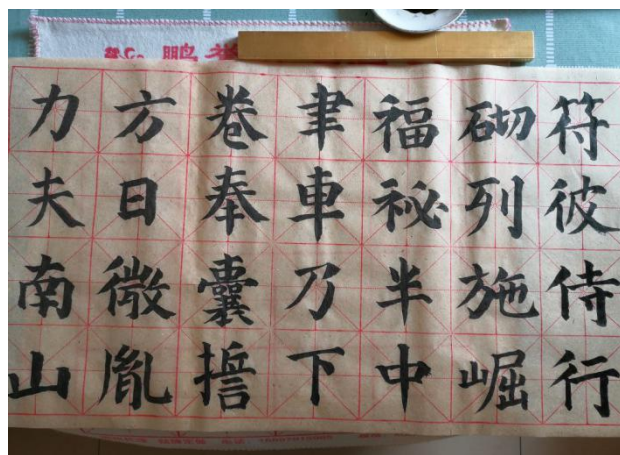 鹏
符彼侍行
砌列施崛
福祕半中
聿車乃下
卷奉囊
方日微胤
力夫南山